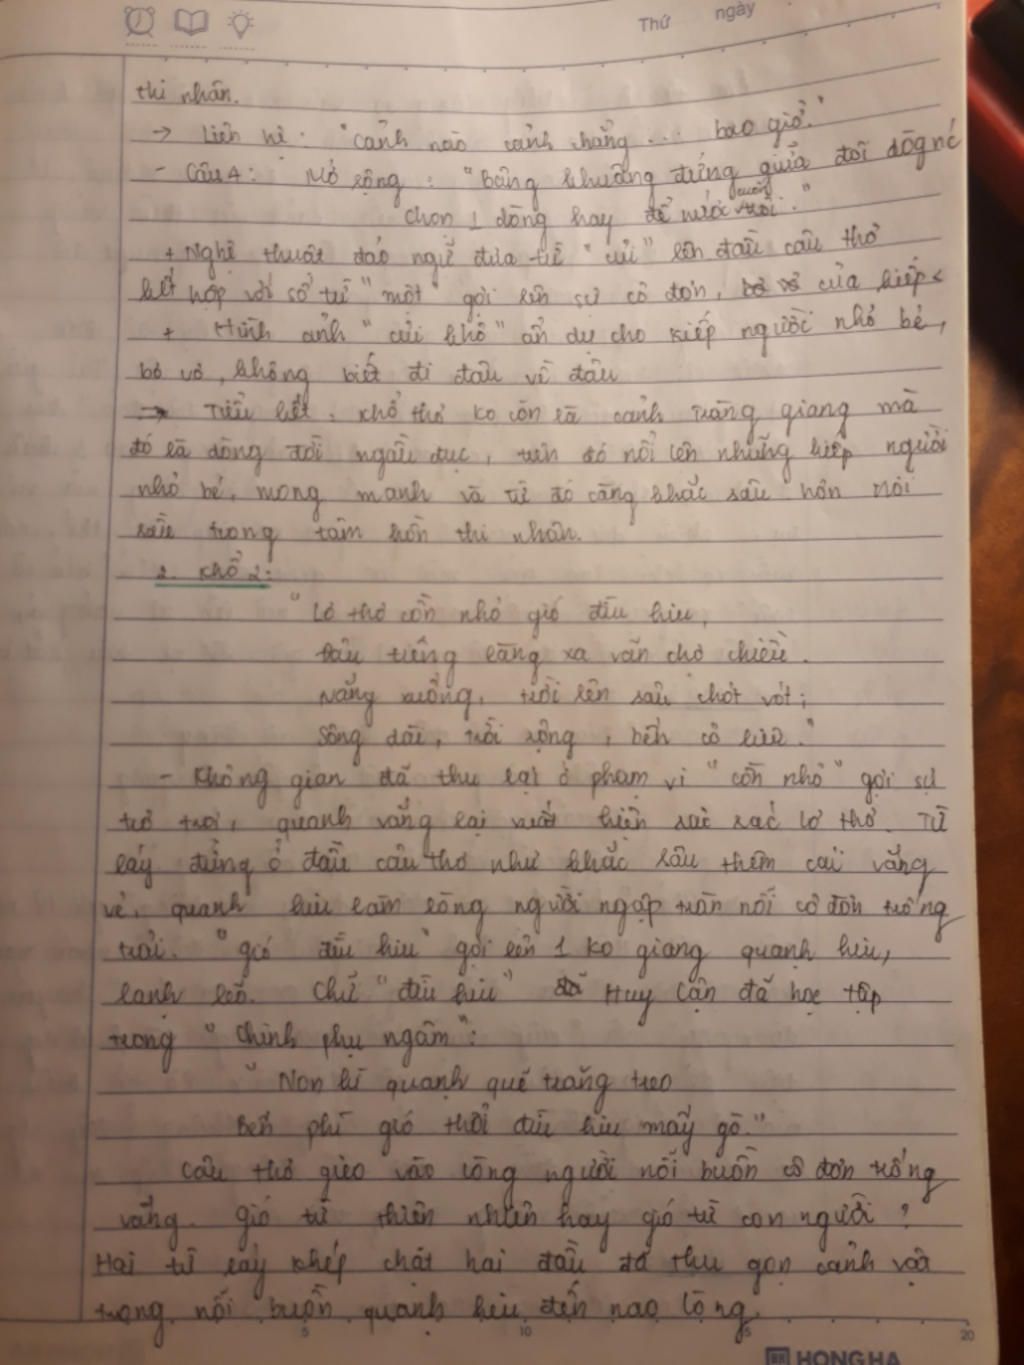 Thứ ngày
thi nhân.
→ Liên hệ: "Cảnh nào cảnh chẳng ... bao giờ."
- Câu 4: Mở rộng: "Bâng khuâng đứng giữa đôi dòg nc
Chọn 1 dòng hay để nước cuốn trôi."
+ Nghệ thuật đảo ngữ đưa từ "củi" lên đầu câu thơ
kết hợp với số từ "một" gợi lên sự cô đơn, bơ vơ của kiếp <
+ Hình ảnh "củi khô" ẩn dụ cho kiếp người nhỏ bé,
bơ vơ, không biết đi đâu về đâu
→ Tiểu kết: Khổ thơ ko còn là cảnh tràng giang mà
đó là dòng đời ngầu đục, trên đó nổi lên những kiếp người
nhỏ bé, mong manh và từ đó càng khắc sâu hơn nỗi
sầu trong tâm hồn thi nhân.
2. Khổ 2:
"Lơ thơ cồn nhỏ gió đìu hiu,
Đâu tiếng làng xa vãn chợ chiều.
Nắng xuống, trời lên sâu chót vót;
Sông dài, trời rộng, bến cô liêu."
- Không gian đã thu lại ở phạm vi "cồn nhỏ" gợi sự
trơ trọi, quạnh vắng lại xuất hiện xác xác lơ thơ. Từ
láy đứng ở đầu câu thơ như khắc sâu thêm cái vắng
vẻ, quạnh hiu làm lòng người ngập tràn nỗi cô đơn trống
trải. "gió đìu hiu" gợi lên 1 ko giang quạnh hiu,
lạnh lẽo. Chữ "đìu hiu" đã Huy Cận đã học tập
trong "Chinh phụ ngâm":
"Non Kì quạnh quẽ trăng treo
Bến phì gió thổi đìu hiu mấy gò."
Câu thơ gieo vào lòng người nỗi buồn cô đơn trống
vắng. Gió từ thiên nhiên hay gió từ con người?
Hai từ láy khép chặt hai đầu đã thu gọn cảnh vật
trong nỗi buồn quạnh hiu đến nao lòng.
5 10 15 20
HONG HA